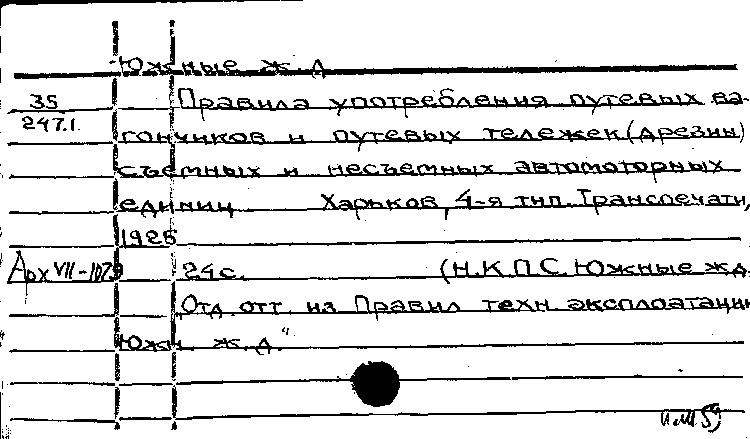 Южные ж.д
35 Правила употребления путевых ва-
247.1. гончиков и путевых тележек (дрезин)
съемных и несъемных автомоторных
единиц Харьков, 4-я тип. Транспечати,
1925
Арх VII-1079 24 с. (Н.К.П.С. Южные жд.
"Отд. отт. из Правил техн эксплоатации
Южн ж.д."